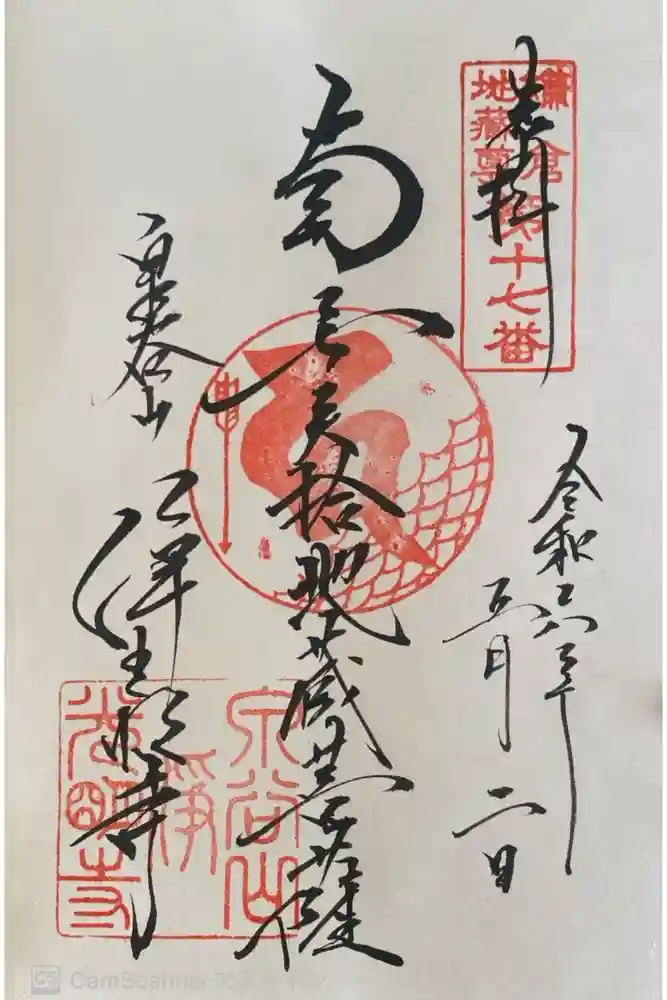 奉拝
鎌倉第十七番
地藏尊
令和六年
五月
二日
南無矢拾地蔵菩薩
泉谷山
浄光明寺
泉谷山
淨
光明寺
CS CamScanner